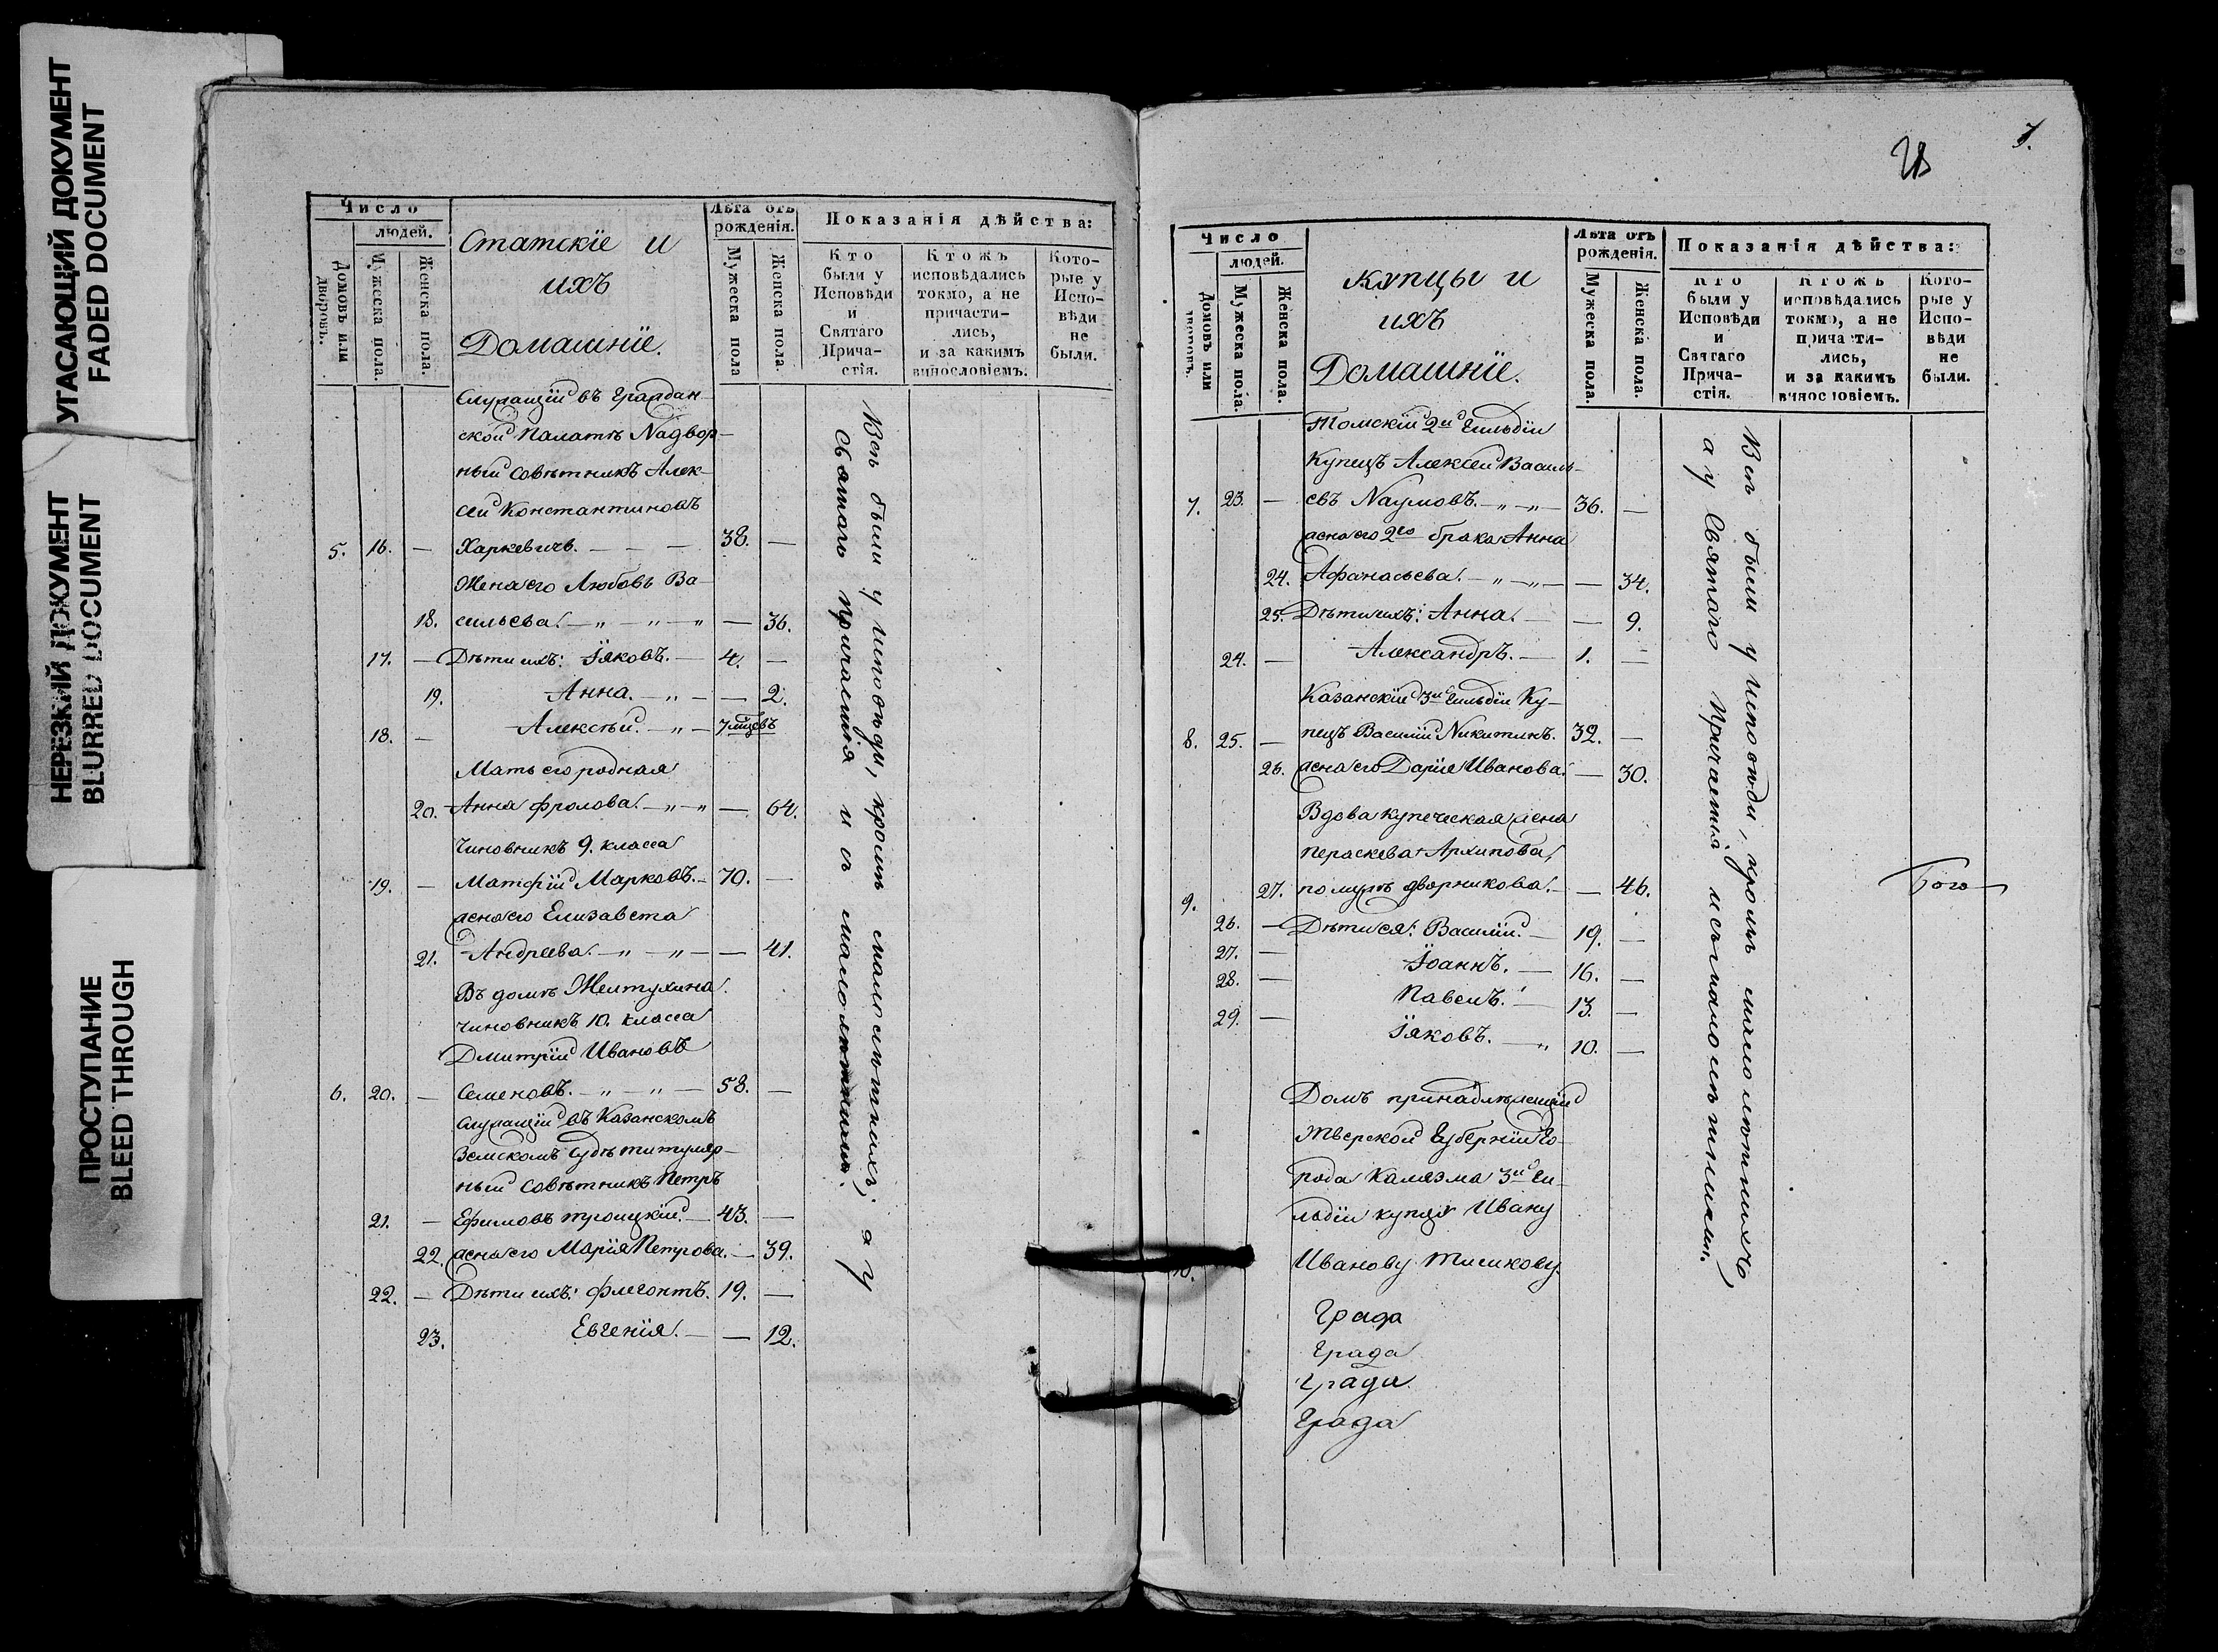 УГАСАЮЩИЙ ДОКУМЕНТ
FADED DOCUMENT
НЕРЕЗКИЙ ДОКУМЕНТ
BLURRED DOCUMENT
ПРОСТУПАНИЕ
BLEED THROUGH
Число
людей.
Домовъ или дворовъ.
Мужеска пола.
Женска пола.
Статскіе и
ихъ
Домашніе.
Лѣта отъ рожденія.
Мужеска пола
Женска пола.
Показанія дѣйства:
Кто были у Исповѣди и Святаго Прича- стія.
Ктожъ исповѣдались токмо, а не причасти- лись, и за какимъ винословіемъ.
Кото- рые у Испо- вѣди не были.
Служащій въ Граждан-
ской Палатѣ Надвор-
ный Совѣтникъ Алек-
сѣй Константиновъ
5. 16. — Харкевичь. — — — 38. —
Жена его Любовь Ва-
18. сильева. — „ — „ — „ — 36.
17. — Дѣти ихъ: Іяковъ. — 4. —
19. Анна. — „ — — 2.
18. — Алексѣй. — „ — 7 мцевъ
Мать его родная
20. Анна Фролова. — „ — „ — 64.
Чиновникъ 9. класса
19. — Матфій Марковъ. — 70. —
жена его Елизавета
21. Андреева. — „ — „ — — 41.
Въ домѣ Желтухина.
Чиновникъ 10. класса
Дмитрій Ивановъ
6. 20. — Семеновъ. — „ — „ — 58. —
Служащій въ Казанскомъ
Земскомъ Судѣ титуляр-
ный Совѣтникъ Петръ
21. — Ефимовъ Троицкій. — 43. —
22. жена его Марія Петрова. — 39.
22. — Дѣти ихъ: Флегонтъ. 19. —
23. Евгенія. — — 12.
Всѣ были у исповѣди, кромѣ малолѣтнихъ; а у
Святаго причастія и съ малолѣтными.
7.
Число
людей.
Домовъ или дворовъ.
Мужеска пола.
Женска пола.
Купцы и
ихъ
Домашніе.
Лѣта отъ рожденія.
Мужеска пола.
Женска пола.
Показанія дѣйства:
Кто были у Исповѣди и Святаго Прича- стія.
Ктожъ исповѣдались токмо, а не причасти- лись, и за какимъ винословіемъ.
Кото- рые у Испо- вѣди не были.
Томскій 2й Гильдіи
Купецъ Алексѣй Василь-
7. 23. — евъ Наумовъ. — „ — „ — 36. —
жена его 2го брака Анна
24. Афанасьева. — „ — „ — — 34.
25. Дѣти ихъ: Анна. — — 9.
24. — Александръ. — 1. —
Казанскій 3й Гильдіи Ку-
8. 25. — пецъ Василій Никитинъ. 32. —
26. жена его Дарія Иванова. — 30.
Вдова купеческая жена
Пераскева Архипова,
9. 27. по мужѣ Дворникова. — — 46.
26. — Дѣти ея: Василій. — 19. —
27. — Іоаннъ. — 16. —
28. — Павелъ. — 13. —
29. — Іяковъ. — „ 10. —
Домъ принадлежащій
Тверской Губерніи Го-
рода Калязма 3й Ги-
льдіи купцу Ивану
10. Иванову Тишкову.
Града
Града
Града
Града
Всѣ были у исповѣди, кромѣ малолѣтнихъ,
а у Святаго Причастія и съ малолѣтними.